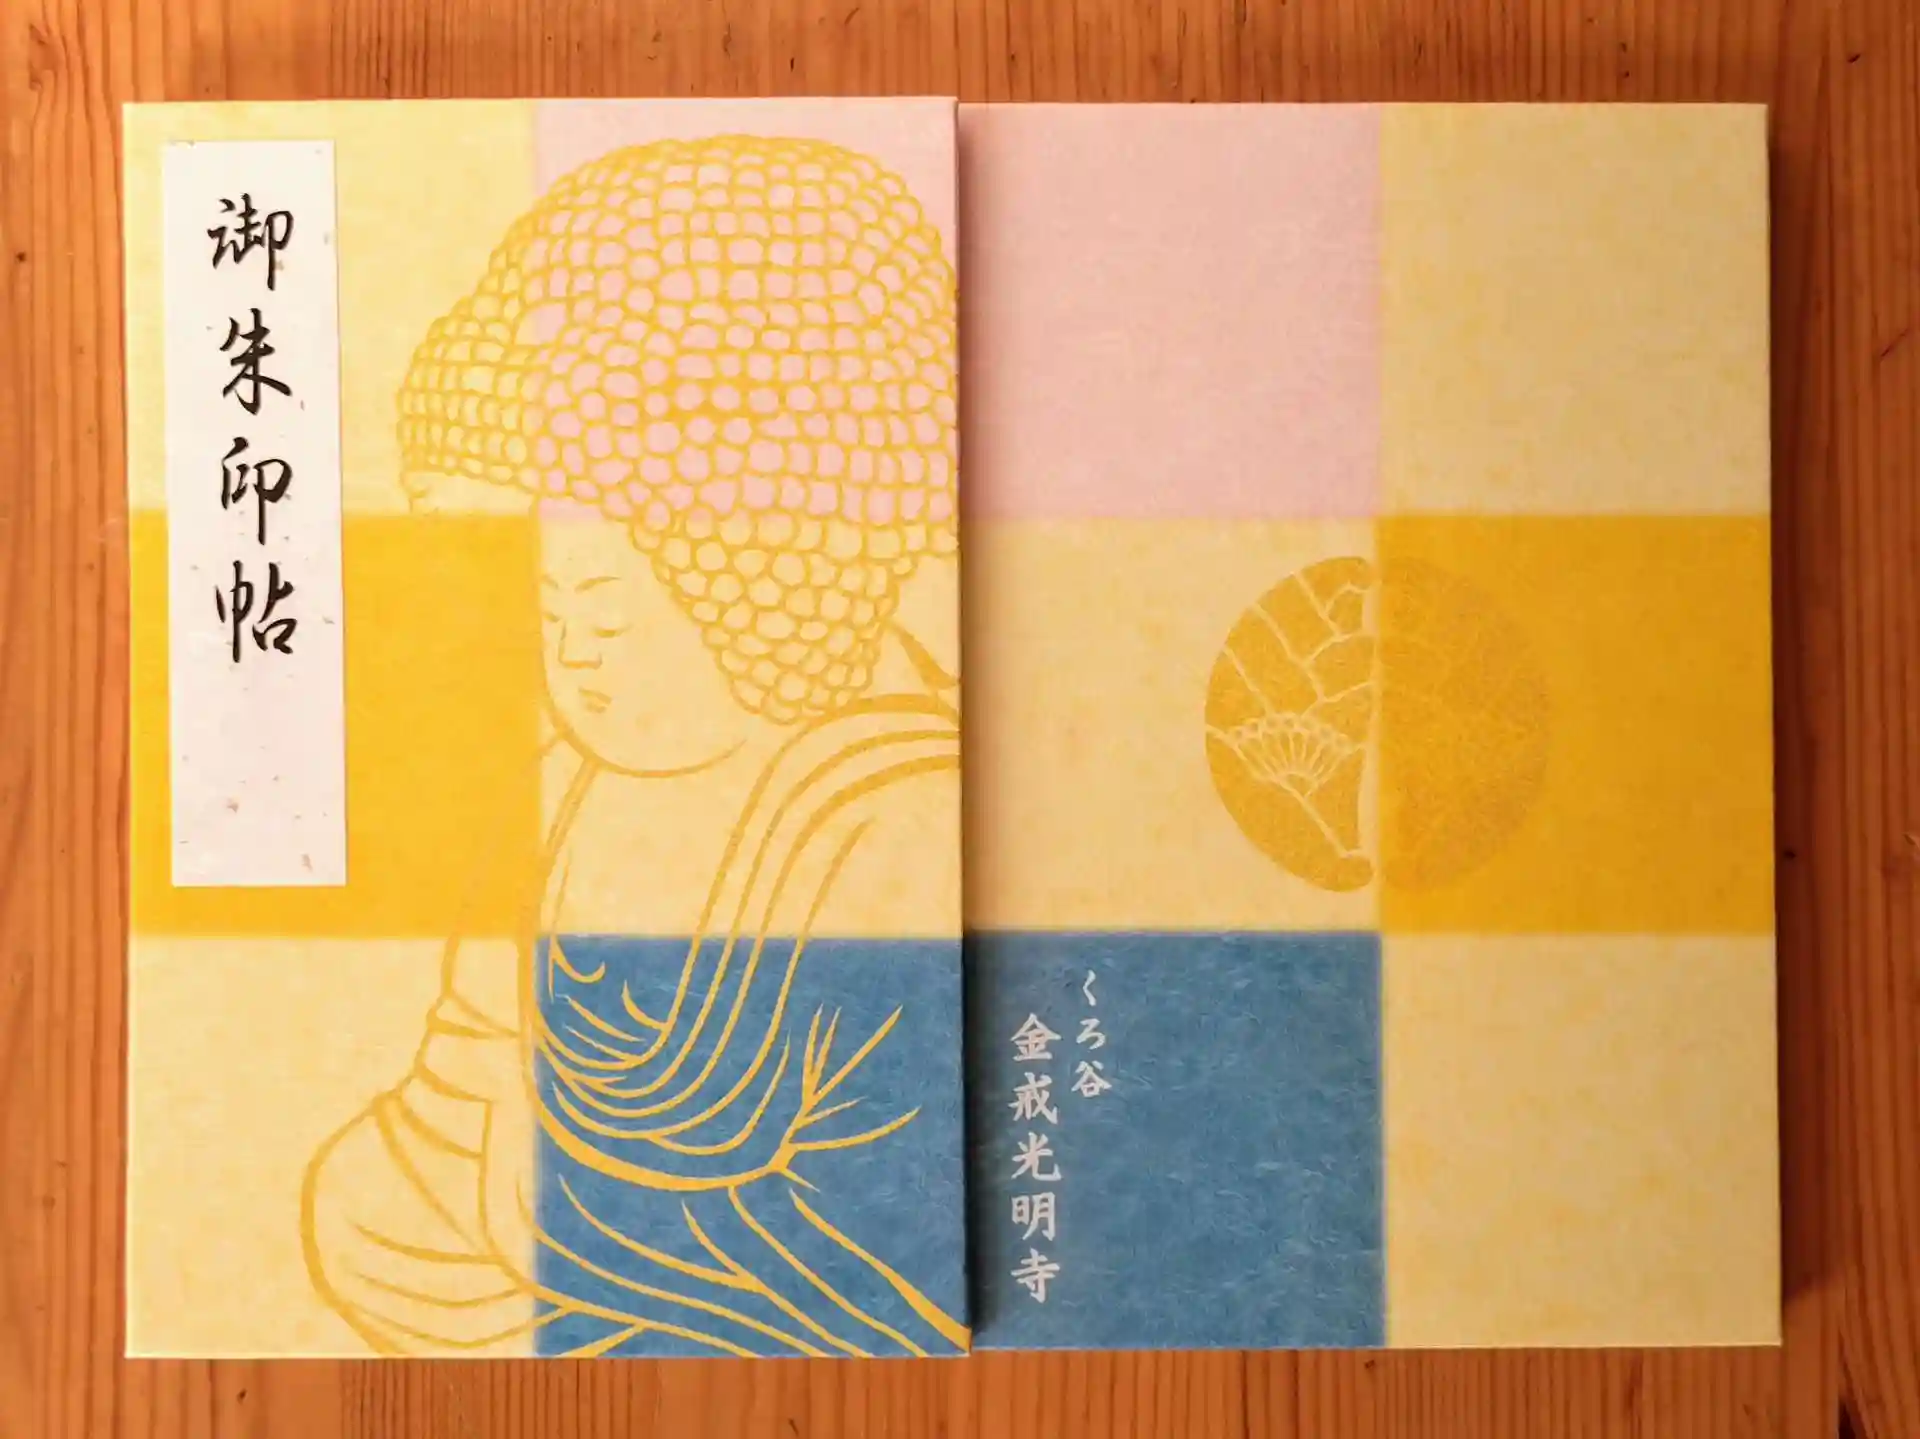 御朱印帖
くろ谷
金戒光明寺